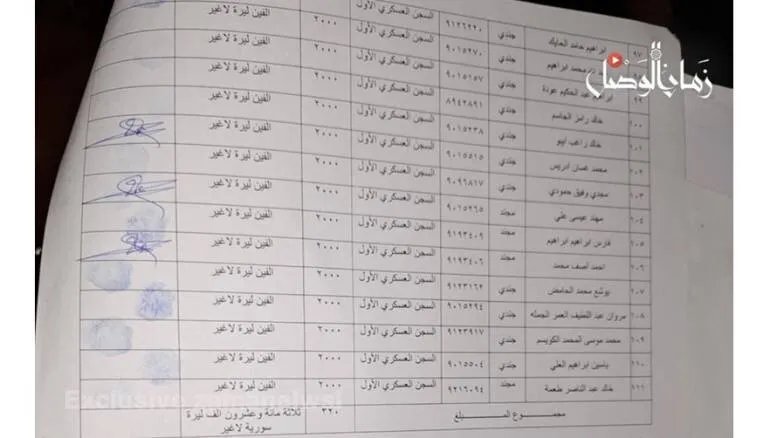 زمان الوصل
٩٧ ابراهيم حامد الحايك جندي ٩١٢٦٢٢٠ السجن العسكري الأول ٢٠٠٠ الفين ليرة لاغير
محمد ابراهيم جندي ٩٠١٥٢٧٠ السجن العسكري الأول ٢٠٠٠ الفين ليرة لاغير
٩٩ ابراهيم عبد الحكيم عودة جندي ٩٠١٥١٥٧ السجن العسكري الأول ٢٠٠٠ الفين ليرة لاغير
١٠٠ خالد رامز الجاسم جندي ٨٩٤٢٨٩١ السجن العسكري الأول ٢٠٠٠ الفين ليرة لاغير
١٠١ خالد راغب ايبو جندي ٩٠١٥٢٣٨ السجن العسكري الأول ٢٠٠٠ الفين ليرة لاغير
١٠٢ محمد غسان ادريس جندي ٩٠١٥٥١٥ السجن العسكري الأول ٢٠٠٠ الفين ليرة لاغير
١٠٣ مجدي وفيق حمودي جندي ٩٠٩٦٨١٧ السجن العسكري الأول ٢٠٠٠ الفين ليرة لاغير
١٠٤ مهند عيسى علي مجند ٩٠١٥٢٦٥ السجن العسكري الأول ٢٠٠٠ الفين ليرة لاغير
١٠٥ فارس ابراهيم ابراهيم مجند ٩١٩٣٤٠٩ السجن العسكري الأول ٢٠٠٠ الفين ليرة لاغير
١٠٦ احمد آصف محمد مجند ٩١٩٣٤٠٦ السجن العسكري الأول ٢٠٠٠ الفين ليرة لاغير
١٠٧ يوشع محمد الحامض جندي ٩١٢٣١٦٢ السجن العسكري الأول ٢٠٠٠ الفين ليرة لاغير
١٠٨ مروان عبد اللطيف العمر الجمله جندي ٩٠١٥٢٩٤ السجن العسكري الأول ٢٠٠٠ الفين ليرة لاغير
١٠٩ محمد موسى المحمد الكويسم جندي ٩١٢٣٩١٧ السجن العسكري الأول ٢٠٠٠ الفين ليرة لاغير
١١٠ ياسين ابراهيم العلي جندي ٩٠١٥٥٠٤ السجن العسكري الأول ٢٠٠٠ الفين ليرة لاغير
١١١ خالد عبد الناصر طعمة مجند ٩٢١٦٠٩٤ السجن العسكري الأول ٢٠٠٠ الفين ليرة لاغير
مجمـــوع المـــبلغ ٣٢٠ ثلاثة مائة وعشرون الف ليرة
سورية لاغير
Exclusive zamanalwsl